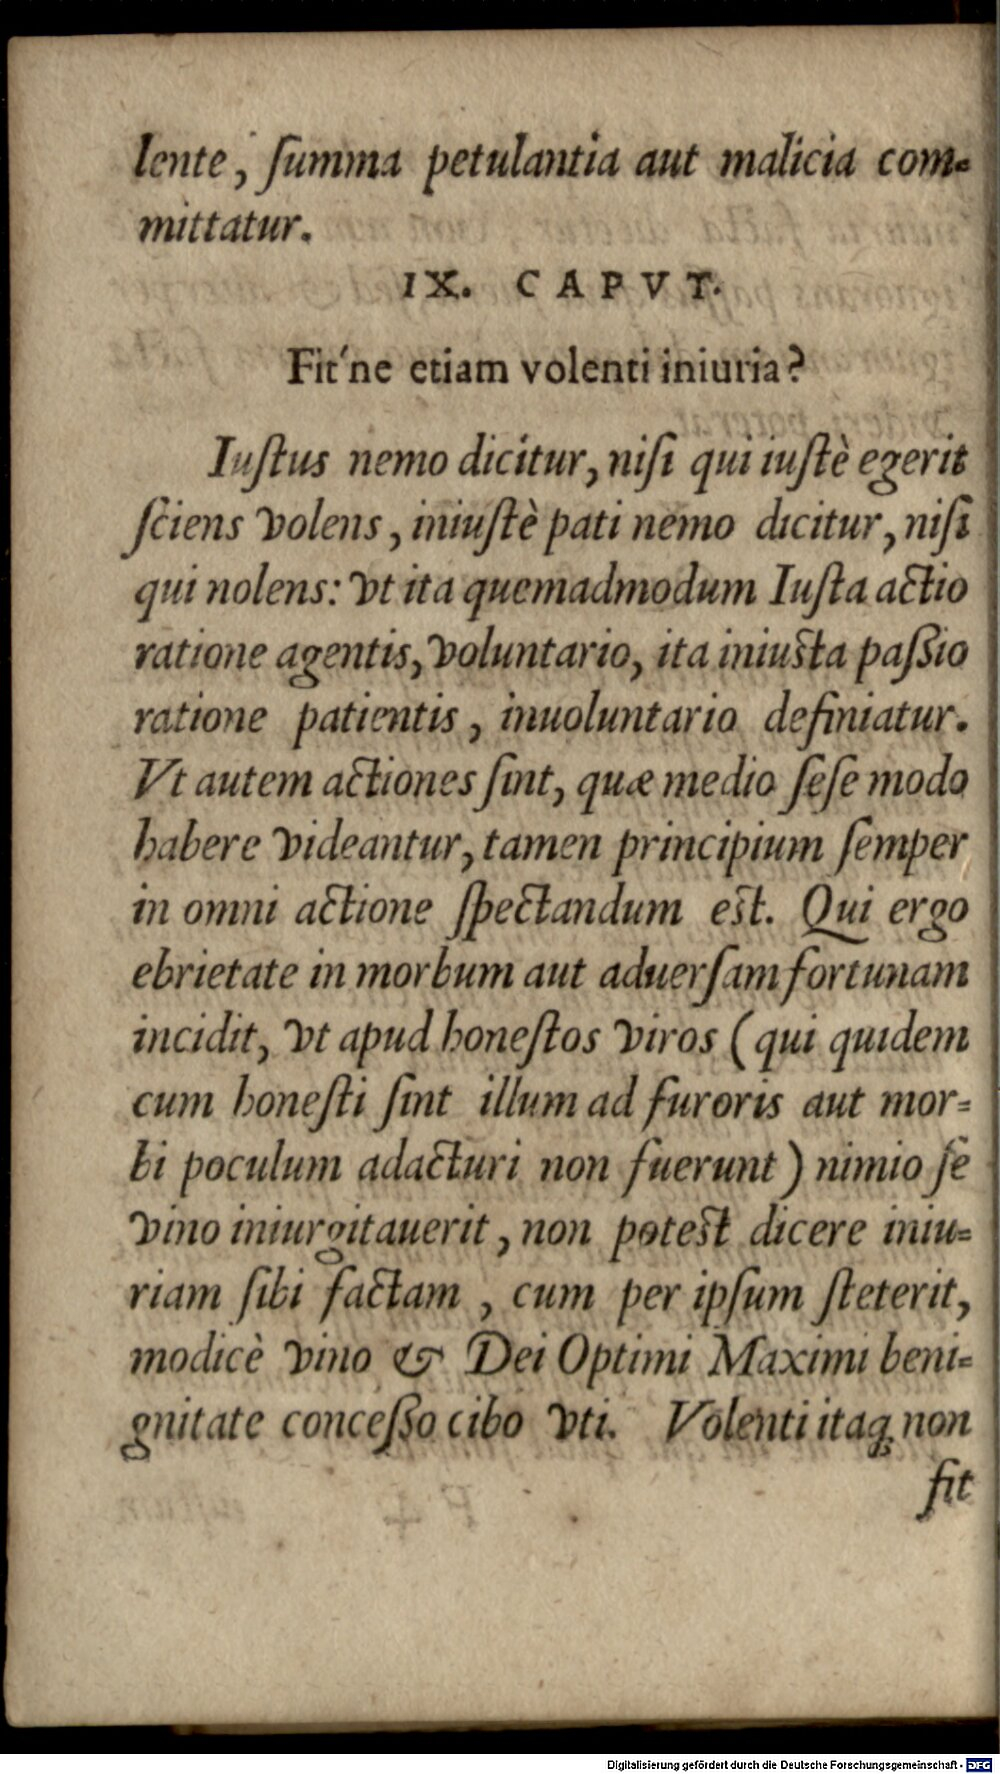 lente, ſumma petulantia aut malicia com-
mittatur.
IX. CAPVT.
Fit'ne etiam volenti iniuria?
Iuſtus nemo dicitur, niſi qui iuſtè egerit
ſciens volens, iniuſtè pati nemo dicitur, niſi
qui nolens: vt ita quemadmodum Iuſta actio
ratione agentis, voluntario, ita iniuſta paſſio
ratione patientis, inuoluntario definiatur.
Vt autem actiones ſint, quæ medio ſeſe modo
habere videantur, tamen principium ſemper
in omni actione ſpectandum eſt. Qui ergo
ebrietate in morbum aut aduerſam fortunam
incidit, vt apud honeſtos viros (qui quidem
cum honeſti ſint illum ad furoris aut mor-
bi poculum adacturi non fuerunt) nimio ſe
vino iniurgitauerit, non poteſt dicere iniu-
riam ſibi factam, cum per ipſum ſteterit,
modicè vino & Dei Optimi Maximi beni-
gnitate conceſſo cibo vti. Volenti itaq; non
fit
Digitalisierung gefördert durch die Deutsche Forschungsgemeinschaft - DFG